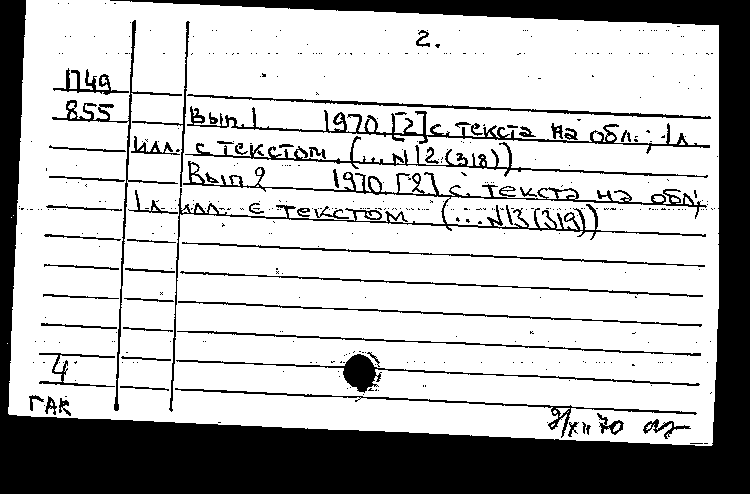 2.
П49
855
Вып.1 1970. [2] с. текста на обл.; 1 л.
илл. с текстом. (... N12 (318)).
Вып 2 1970 [2] с. текста на обл;
1 л илл. с текстом. (... N13 (319))
4
ГАК
/XII 70